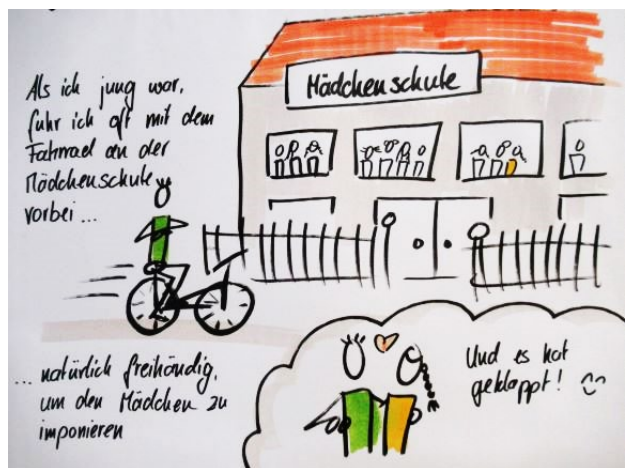 Als ich jung war,
fuhr ich oft mit dem
Fahrrad an der
Mädchenschule
vorbei ...
Mädchenschule
... natürlich freihändig,
um den Mädchen zu
imponieren
Und es hat
geklappt!